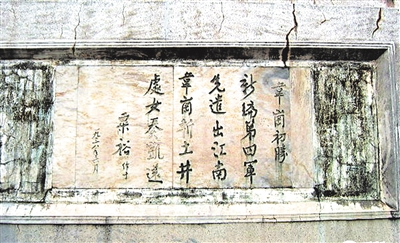 韋崗初勝
新编第四軍
先遣出江南
韋崗斬土井
處女奏凱還
粟裕